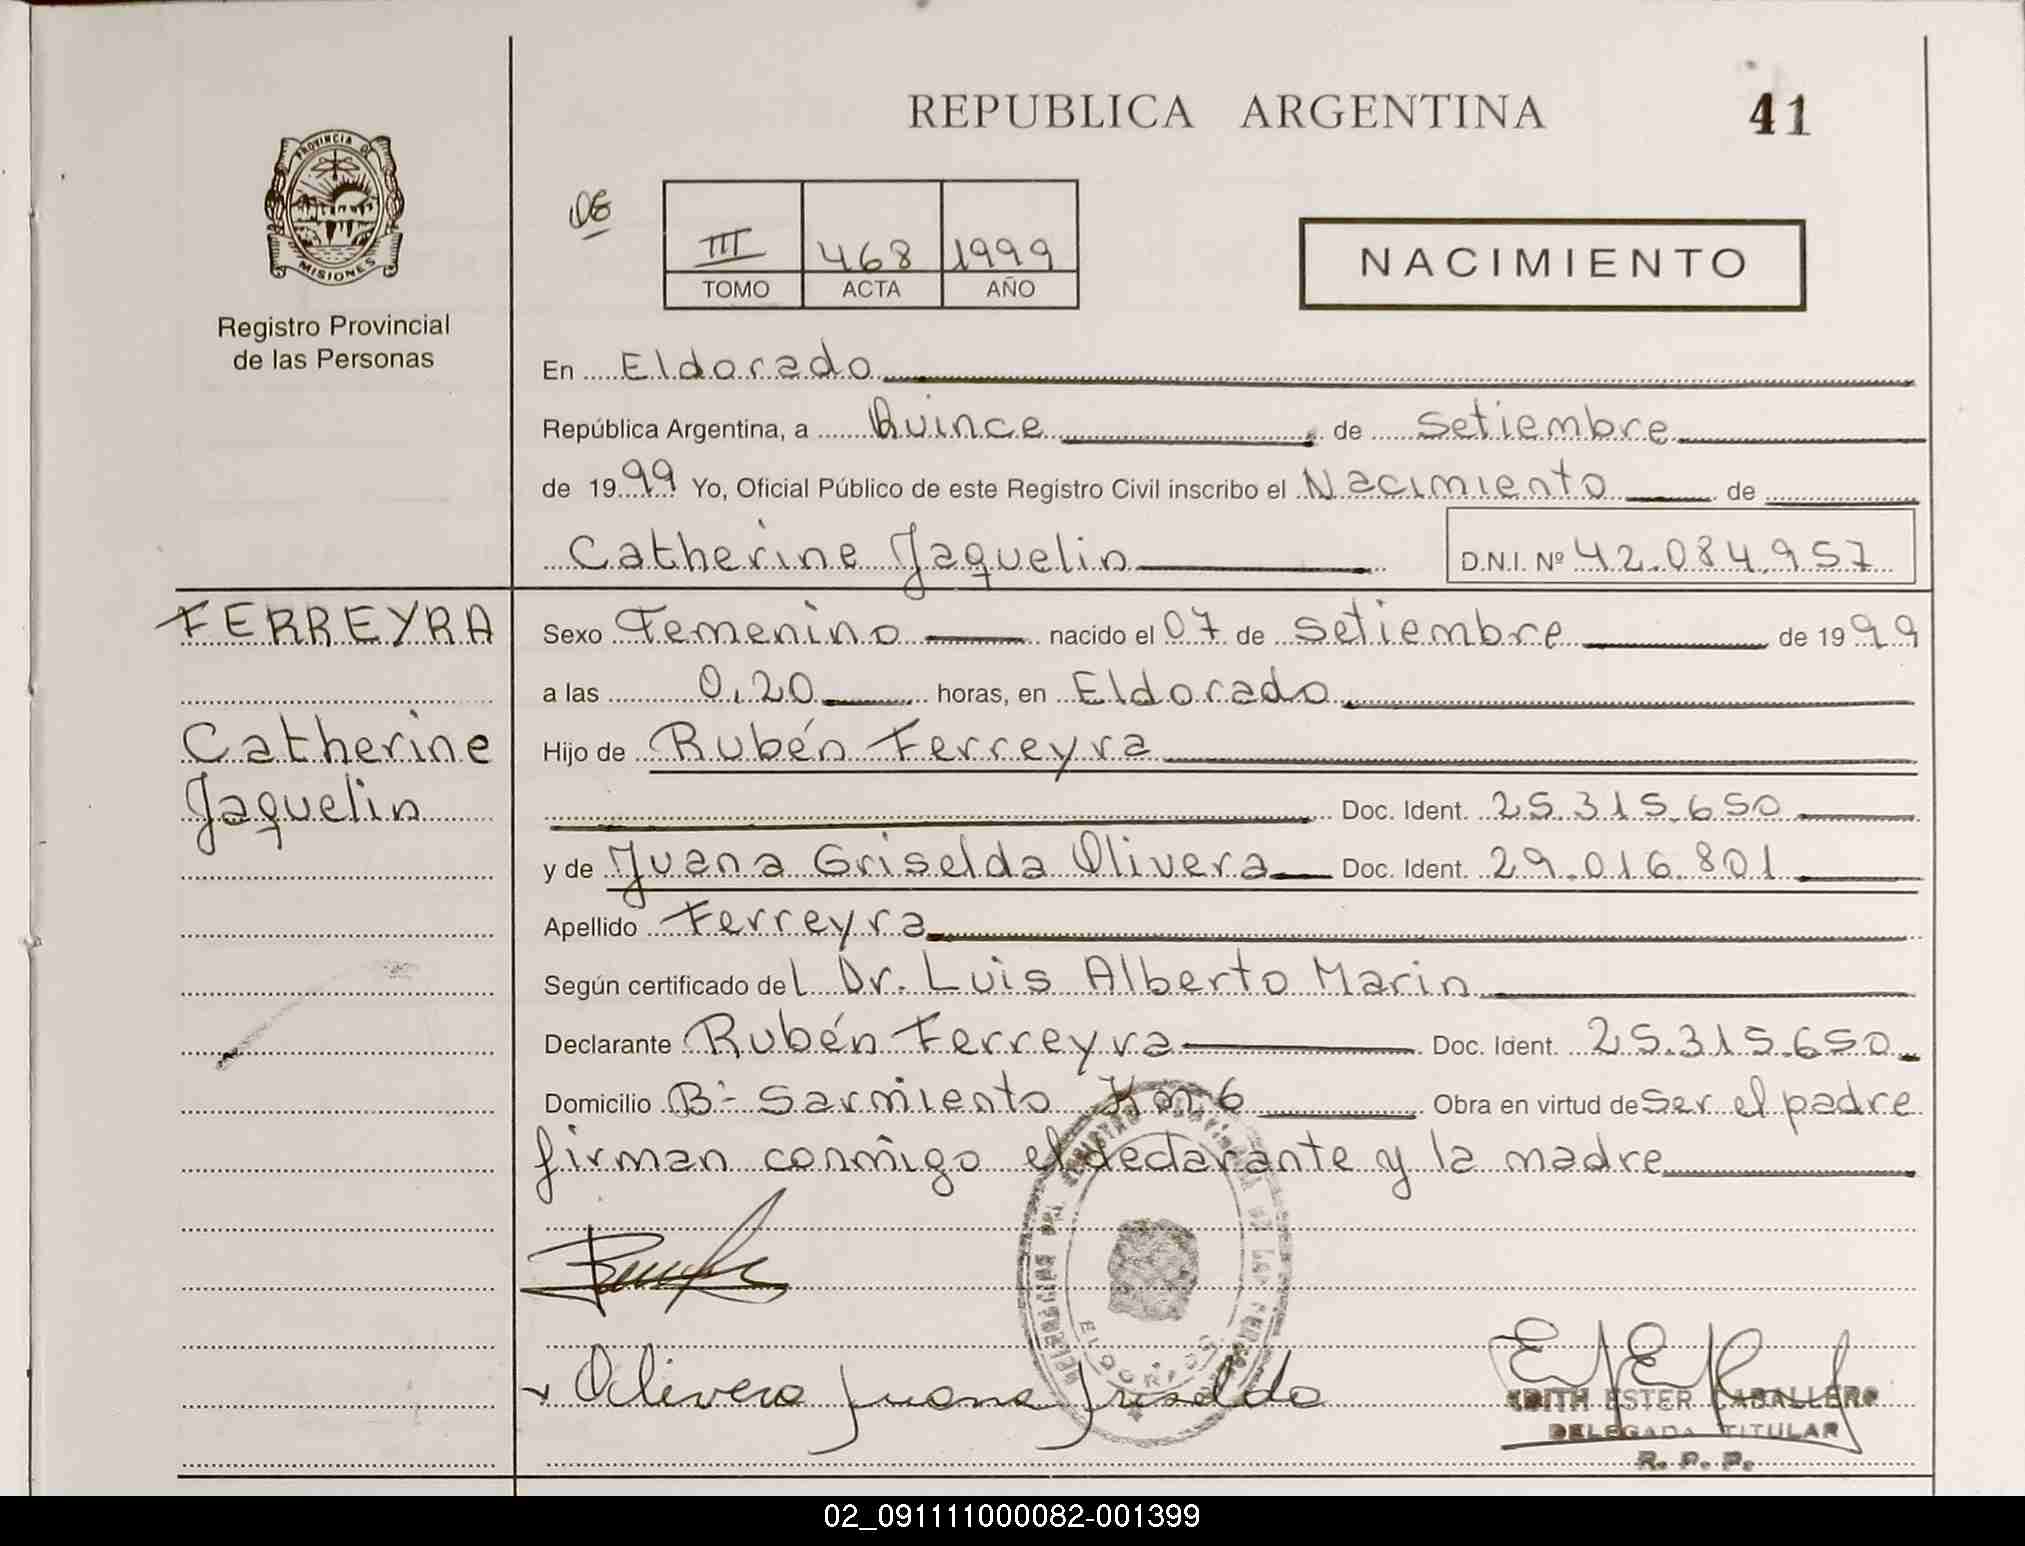 REPUBLICA ARGENTINA
41
PROVINCIA DE
MISIONES
Registro Provincial
de las Personas
III 468 1999
TOMO ACTA AÑO
NACIMIENTO
En Eldorado
República Argentina, a Quince de Setiembre
de 1999 Yo, Oficial Público de este Registro Civil inscribo el Nacimiento de
Catherine Jaquelin D.N.I. Nº 42.084.957
FERREYRA
Catherine
Jaquelin
Sexo Femenino nacido el 07 de Setiembre de 1999
a las 0.20 horas, en Eldorado
Hijo de Rubén Ferreyra
Doc. Ident. 25.315.650
y de Juana Griselda Olivera Doc. Ident. 29.016.801
Apellido Ferreyra
Según certificado del Dr. Luis Alberto Marin
Declarante Rubén Ferreyra Doc. Ident. 25.315.650
Domicilio Bº Sarmiento Km 6 Obra en virtud de Ser el padre
firman conmigo el declarante y la madre
Olivera Juana Griselda
EDITH ESTER CABALLERO
DELEGADA TITULAR
R. P. P.
02_091111000082-001399